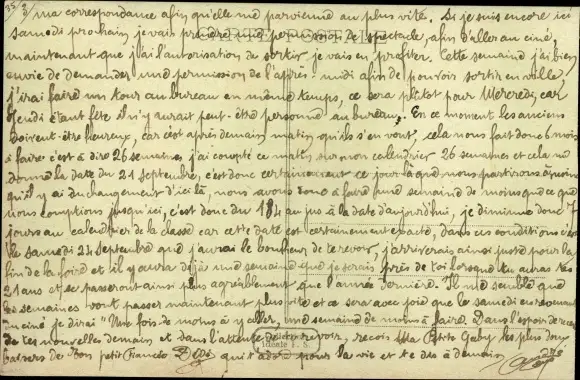 ma correspondance afin qu'elle me parvienne au plus vite. Si je suis encore ici
samedi prochain je vais prendre une permission de spectacle, afin d'aller au ciné,
maintenant que j'ai l'autorisation de sortir je vais en profiter. Cette semaine j'ai bien
envie de demander une permission de l'après midi afin de pouvoir sortir en ville
j'irai faire un tour au bureau en même temps, ce sera plutot pour Mercredi, car
Jeudi étant fête il n'y aurait peut-être personne au bureau. En ce moment les anciens
doivent-être heureux, car c'est après demain matin qu'ils s'en vont, cela nous fait donc 6 mois
à faire c'est à dire 26 semaines j'ai compté ce matin sur mon calendrier 26 semaines et cela me
donne la date du 21 septembre, c'est donc certainement ce jour là que nous partirons à moins
qu'il y ai du changement d'ici là, nous avons donc à faire une semaine de moins que ce que
nous comptions jusqu'ici, c'est donc du 184 au jus à la date d'aujourd'hui, je diminue donc 7
jours au calendrier de la classe car cette date est certainement exacte, dans ces conditions c'est
le samedi 24 septembre que j'aurai le bonheur de te revoir, j'arriverais ainsi juste pour la
fin de la foire et il y aura déjà une semaine que je serais près de toi lorsque tu auras tes
21 ans et se passeront ainsi plus agréablement que l'année dernière. Il me semble que
les semaines vont passer maintenant plus vite et ce sera avec joie que le samedi en revenant
du ciné je dirai "Une fois de moins à y aller, une semaine de moins à faire. Dans l'espoir de rece
de tes nouvelles demain et dans l'attente de te revoir, reçois Ma Petite Gaby les plus doux
baisers de ton petit fiancé Dédé qui t'adore pour la vie et te dis à demain